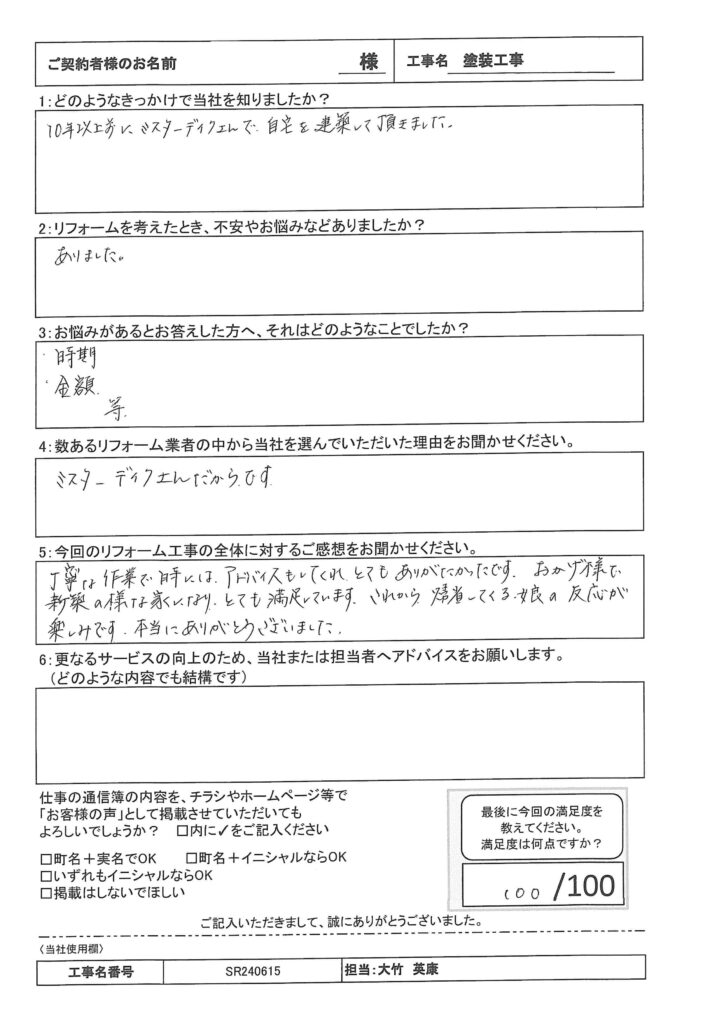 ご契約者様のお名前 様 工事名 塗装工事
1:どのようなきっかけで当社を知りましたか？
10年以上前にミスターデイクエんで、自宅を建築して頂きました。
2:リフォームを考えたとき、不安やお悩みなどありましたか？
ありました。
3:お悩みがあるとお答えした方へ、それはどのようなことでしたか？
・時期
・金額
等.
4:数あるリフォーム業者の中から当社を選んでいただいた理由をお聞かせください。
ミスターデイクエんだからです
5:今回のリフォーム工事の全体に対するご感想をお聞かせください。
丁寧な作業で時には、アドバイスもしてくれ、とてもありがたかったです. おかげ様で
新築の様な家になり、とても満足しています. これから帰省してくる娘の反応が
楽しみです. 本当にありがとうございました.
6:更なるサービスの向上のため、当社または担当者へアドバイスをお願いします。
（どのような内容でも結構です）
仕事の通信簿の内容を、チラシやホームページ等で
「お客様の声」として掲載させていただいても
よろしいでしょうか？ □内に✓をご記入ください
□町名＋実名でOK □町名＋イニシャルならOK
□いずれもイニシャルならOK
□掲載はしないでほしい
最後に今回の満足度を
教えてください。
満足度は何点ですか？
100 /100
ご記入いただきまして、誠にありがとうございました。
〈当社使用欄〉
工事名番号 SR240615 担当:大竹 英康